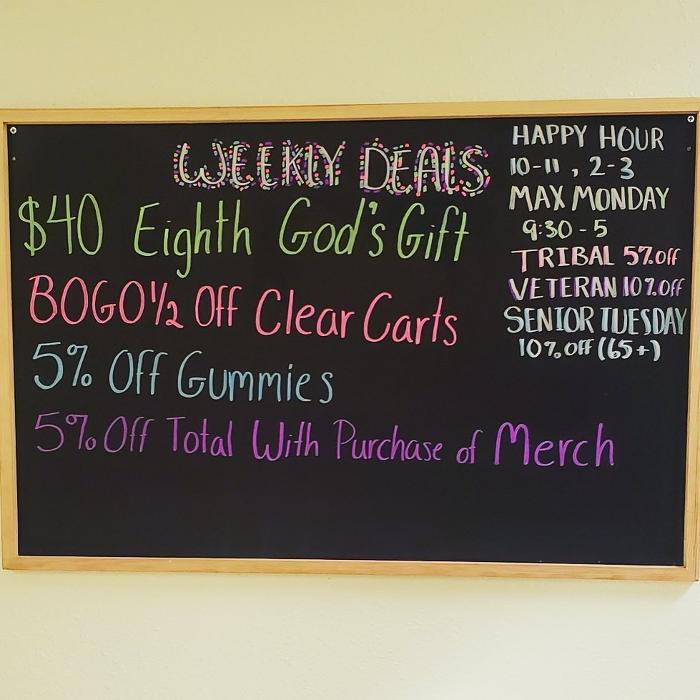 WEEKLY DEALS
$40 Eighth God's Gift
BOGO 1/2 Off Clear Carts
5% Off Gummies
5% Off Total With Purchase of Merch
HAPPY HOUR
10-11, 2-3
MAX MONDAY
9:30-5
TRIBAL 5% off
VETERAN 10% off
SENIOR TUESDAY
10% off (65+)